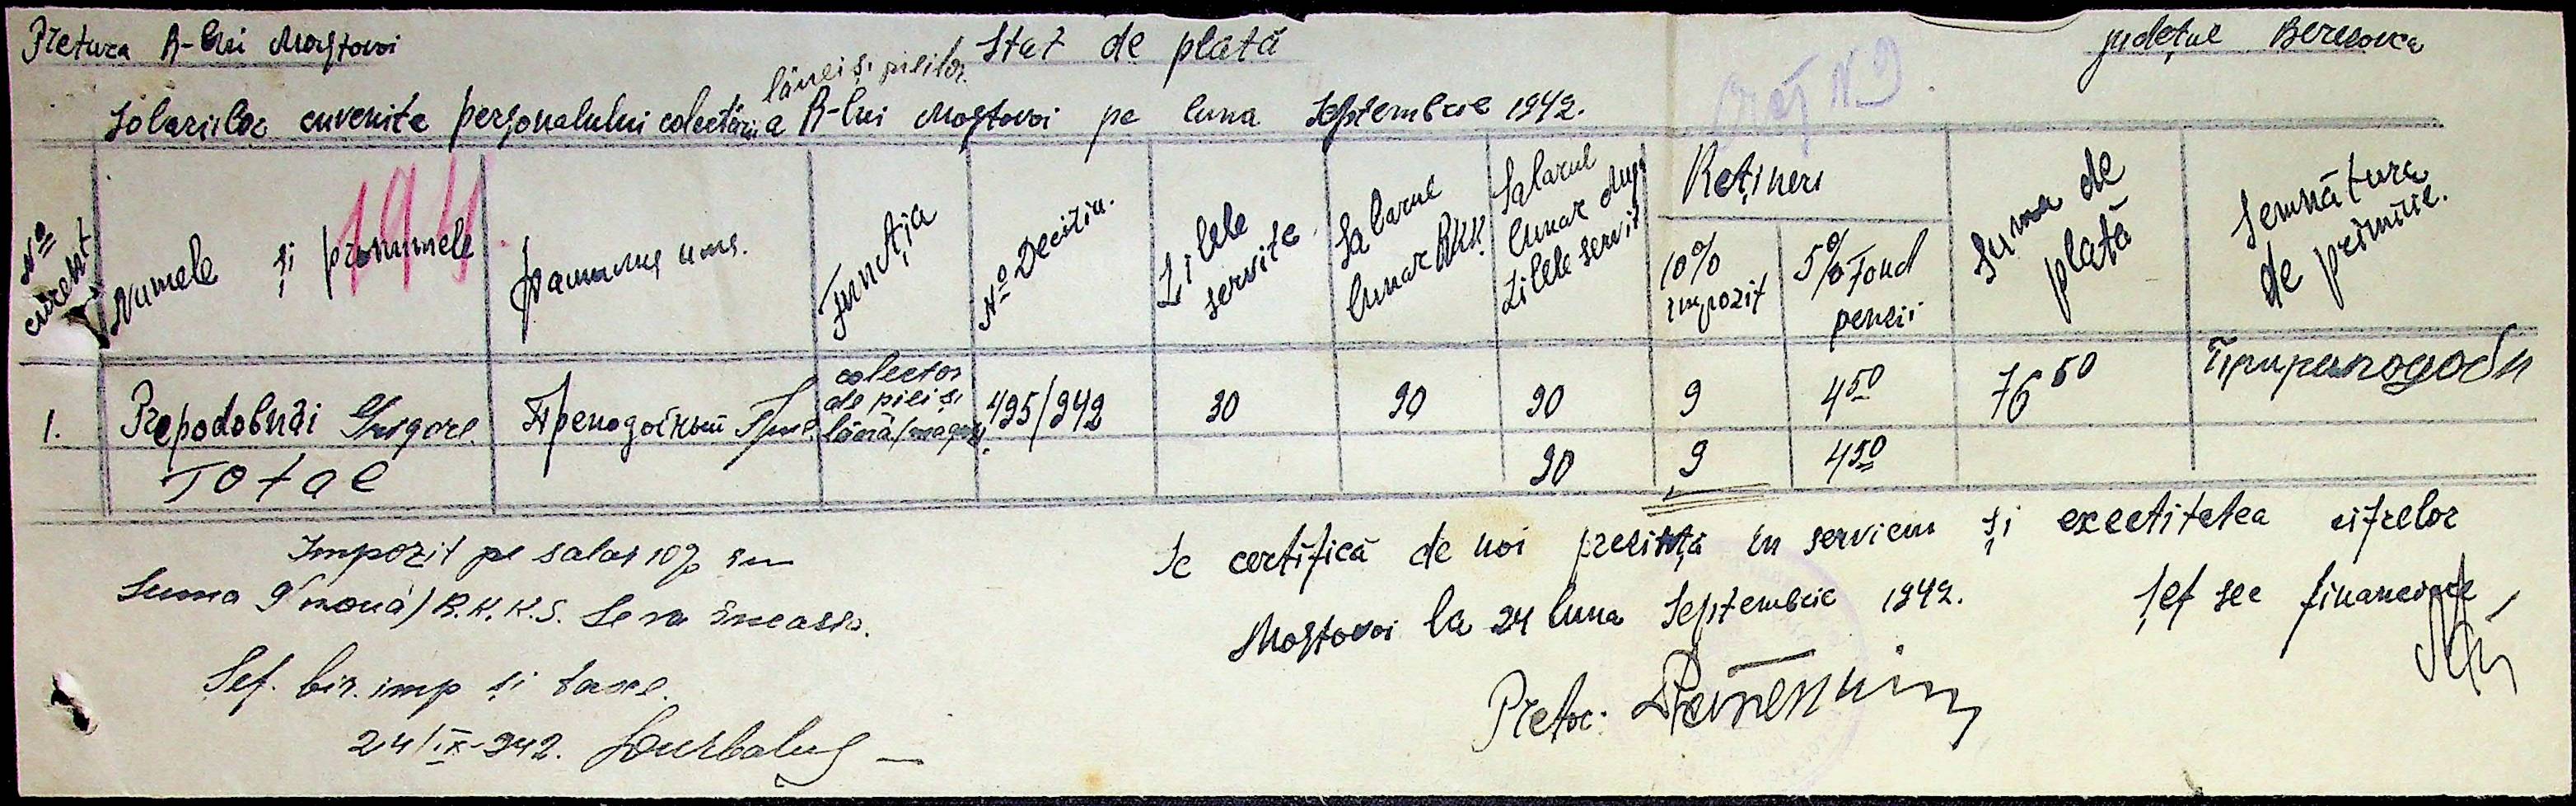 Pretura R-lui Mostovoi
Stat de plată
județul Beresovca
lânei și pieilor
Salariilor cuvenite personalului colectării a R-lui Mostovoi pe luna Septembrie 1942.
No curent
Numele și pronumele
194
Фамилия имя.
Funcția
No Decitia.
Zilele servite
Salarul lunar RKK
Salarul lunar după zilele servit
Rețineri
10% impozit
5% Fond pensii
Suma de plată
Semnătura de primire.
1. Prepodobnâi Grigore Преподобный colector de piei și lână 495/942 30 90 90 9 4 50 76 50
Total 90 9 4 50
Impozit pe salar 10% în
Suma 9 (nouă) R.K.K.S. Se va încassa.
Șef. bir. imp și taxe.
24/IX-942.
Se certifică de noi prezința în serviciu și exectitatea cifrelor
Mostovoi la 24 luna Septembrie 1942.
Șef sec financiare
Pretor: